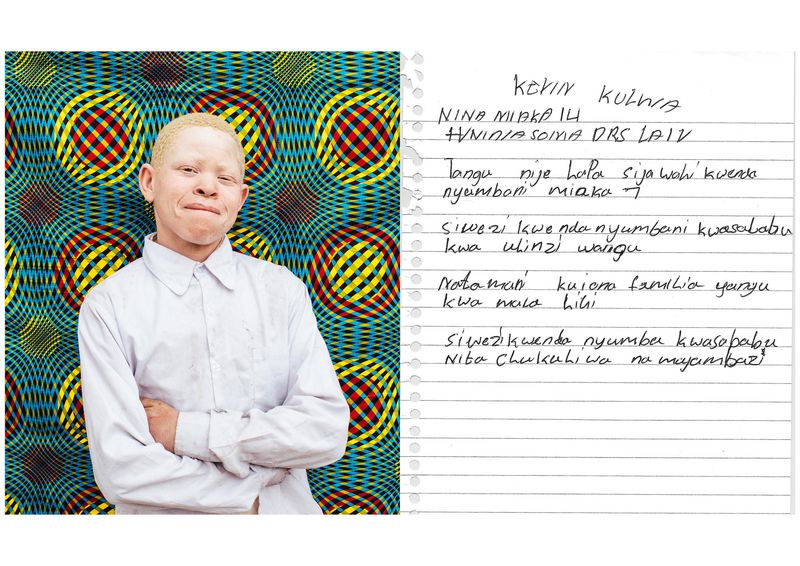 KEVIN KULWA
NINA MIAKA 14
NINASOMA DRS LA IV
Tangu nije hapa sijawahi kwenda
nyumbani miaka 7
siwezi kwenda nyumbani kwasababu
kwa ulinzi wangu
Natamani kuiona familia yangu
kwa mala hili
siwezi kwenda nyumba kwasababu
Nita chukuliwa na mayambazi